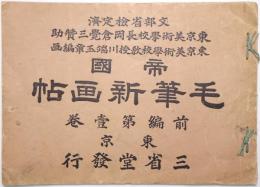 文部省檢定濟
東京美術學校長岡倉覺三賛助
東京美術學校教授川端玉章編画
帝國
毛筆新画帖
前編第壹卷
東京
三省堂發行